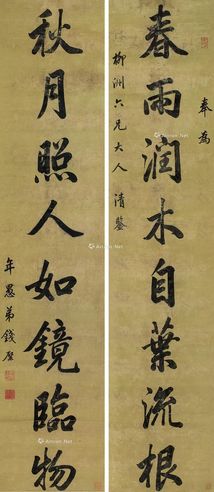 奉為
春雨潤木自葉流根
柳洲六兄大人清鑒
秋月照人如鏡臨物
年愚弟錢